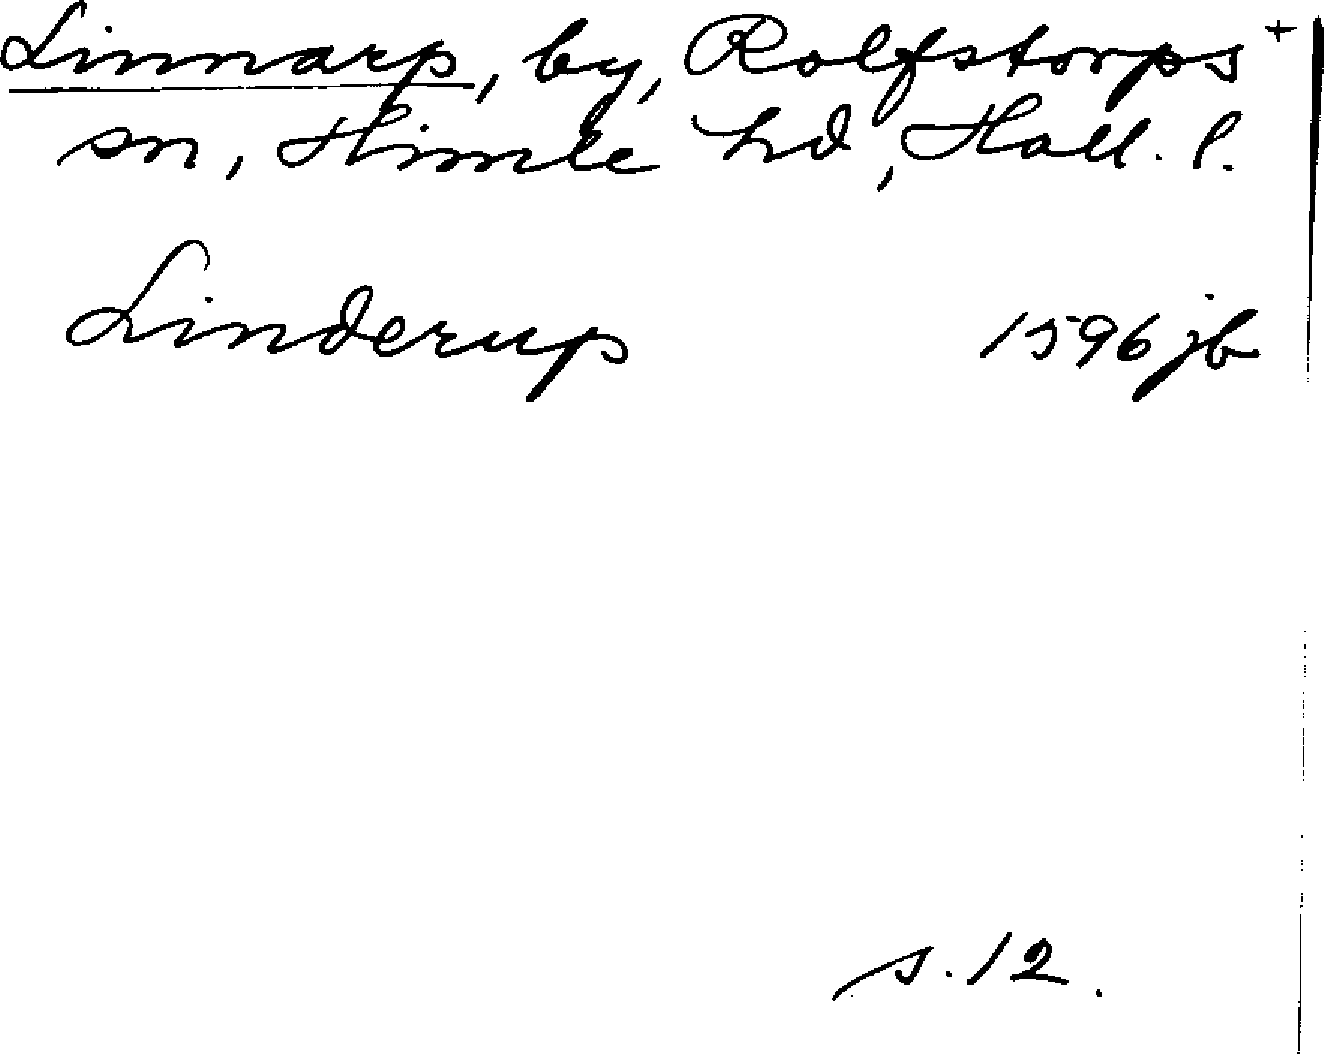 Linnarp, by, Rolfstorps +
sn, Himle hd, Hall. l.
Linderup 1596 jb
s. 12.